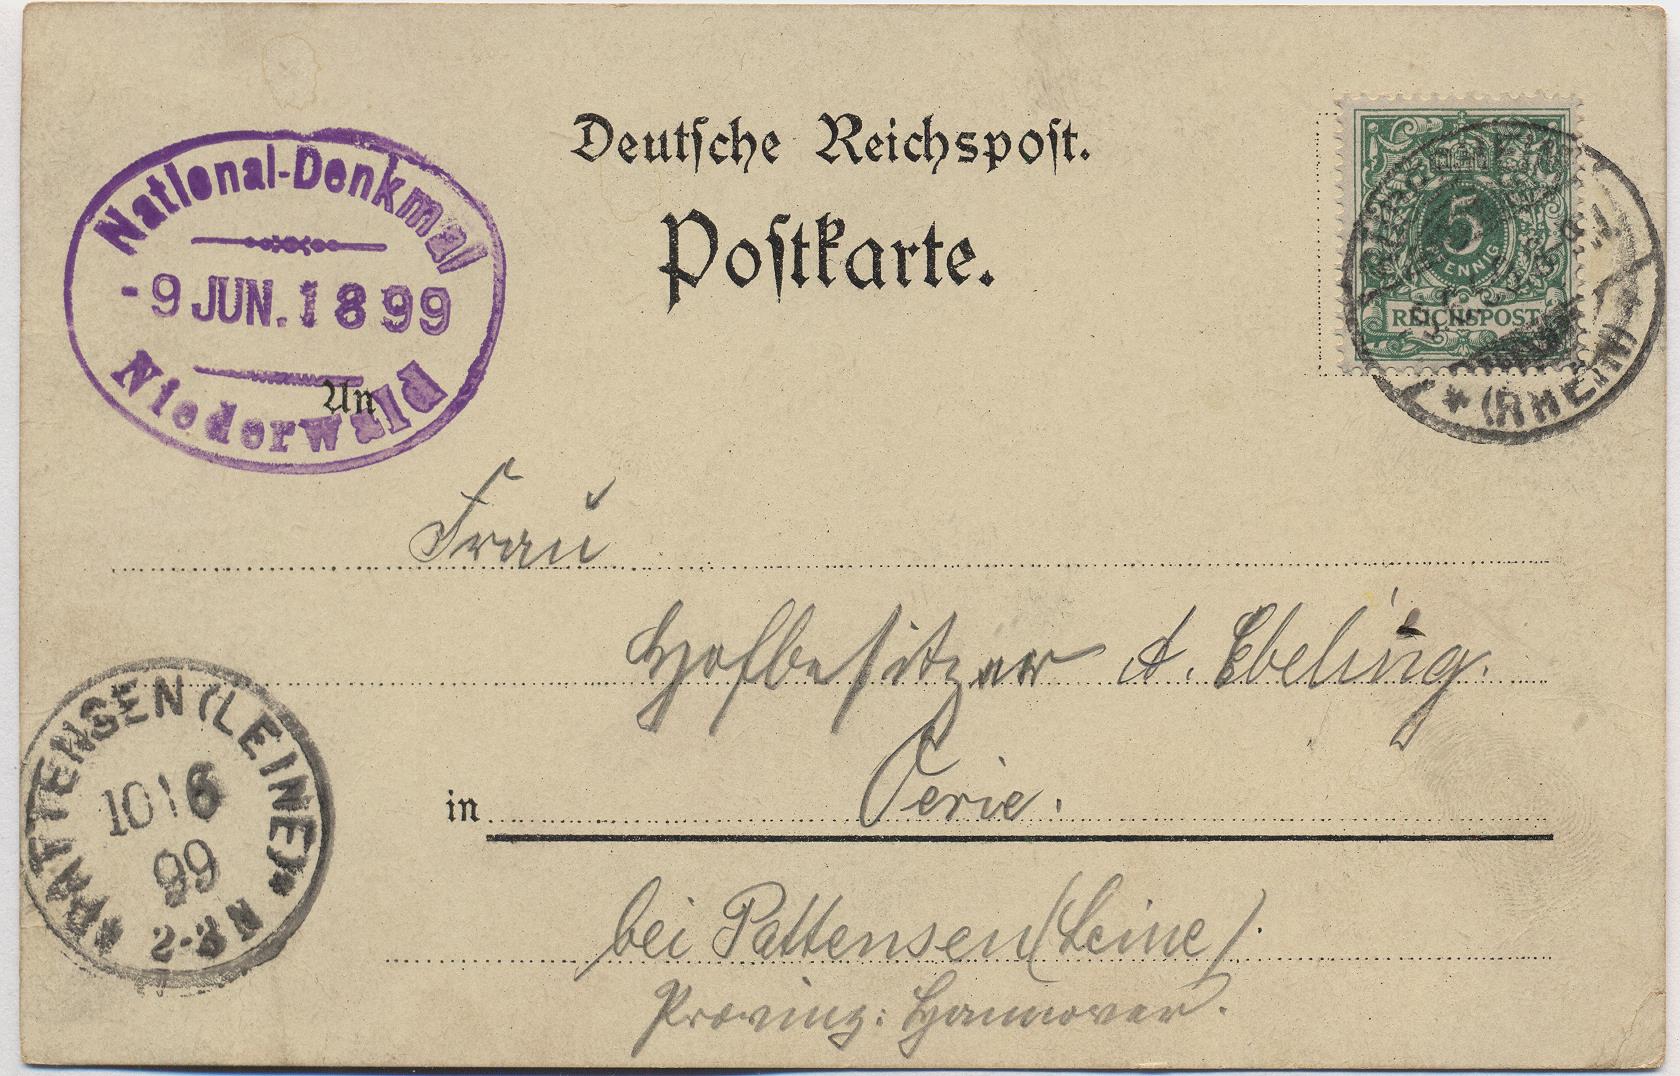 Deutsche Reichspost.
Postkarte.
National-Denkmal
-9 JUN. 1899
Niederwald
An
5
PFENNIG
REICHSPOST
* (RHEIN) *
Frau
Hofbesitzer A. Ebeling.
in Oerie.
bei Pattensen (Leine).
Provinz: Hannover.
*PATTENSEN (LEINE)*
10 6
99
2-3 N